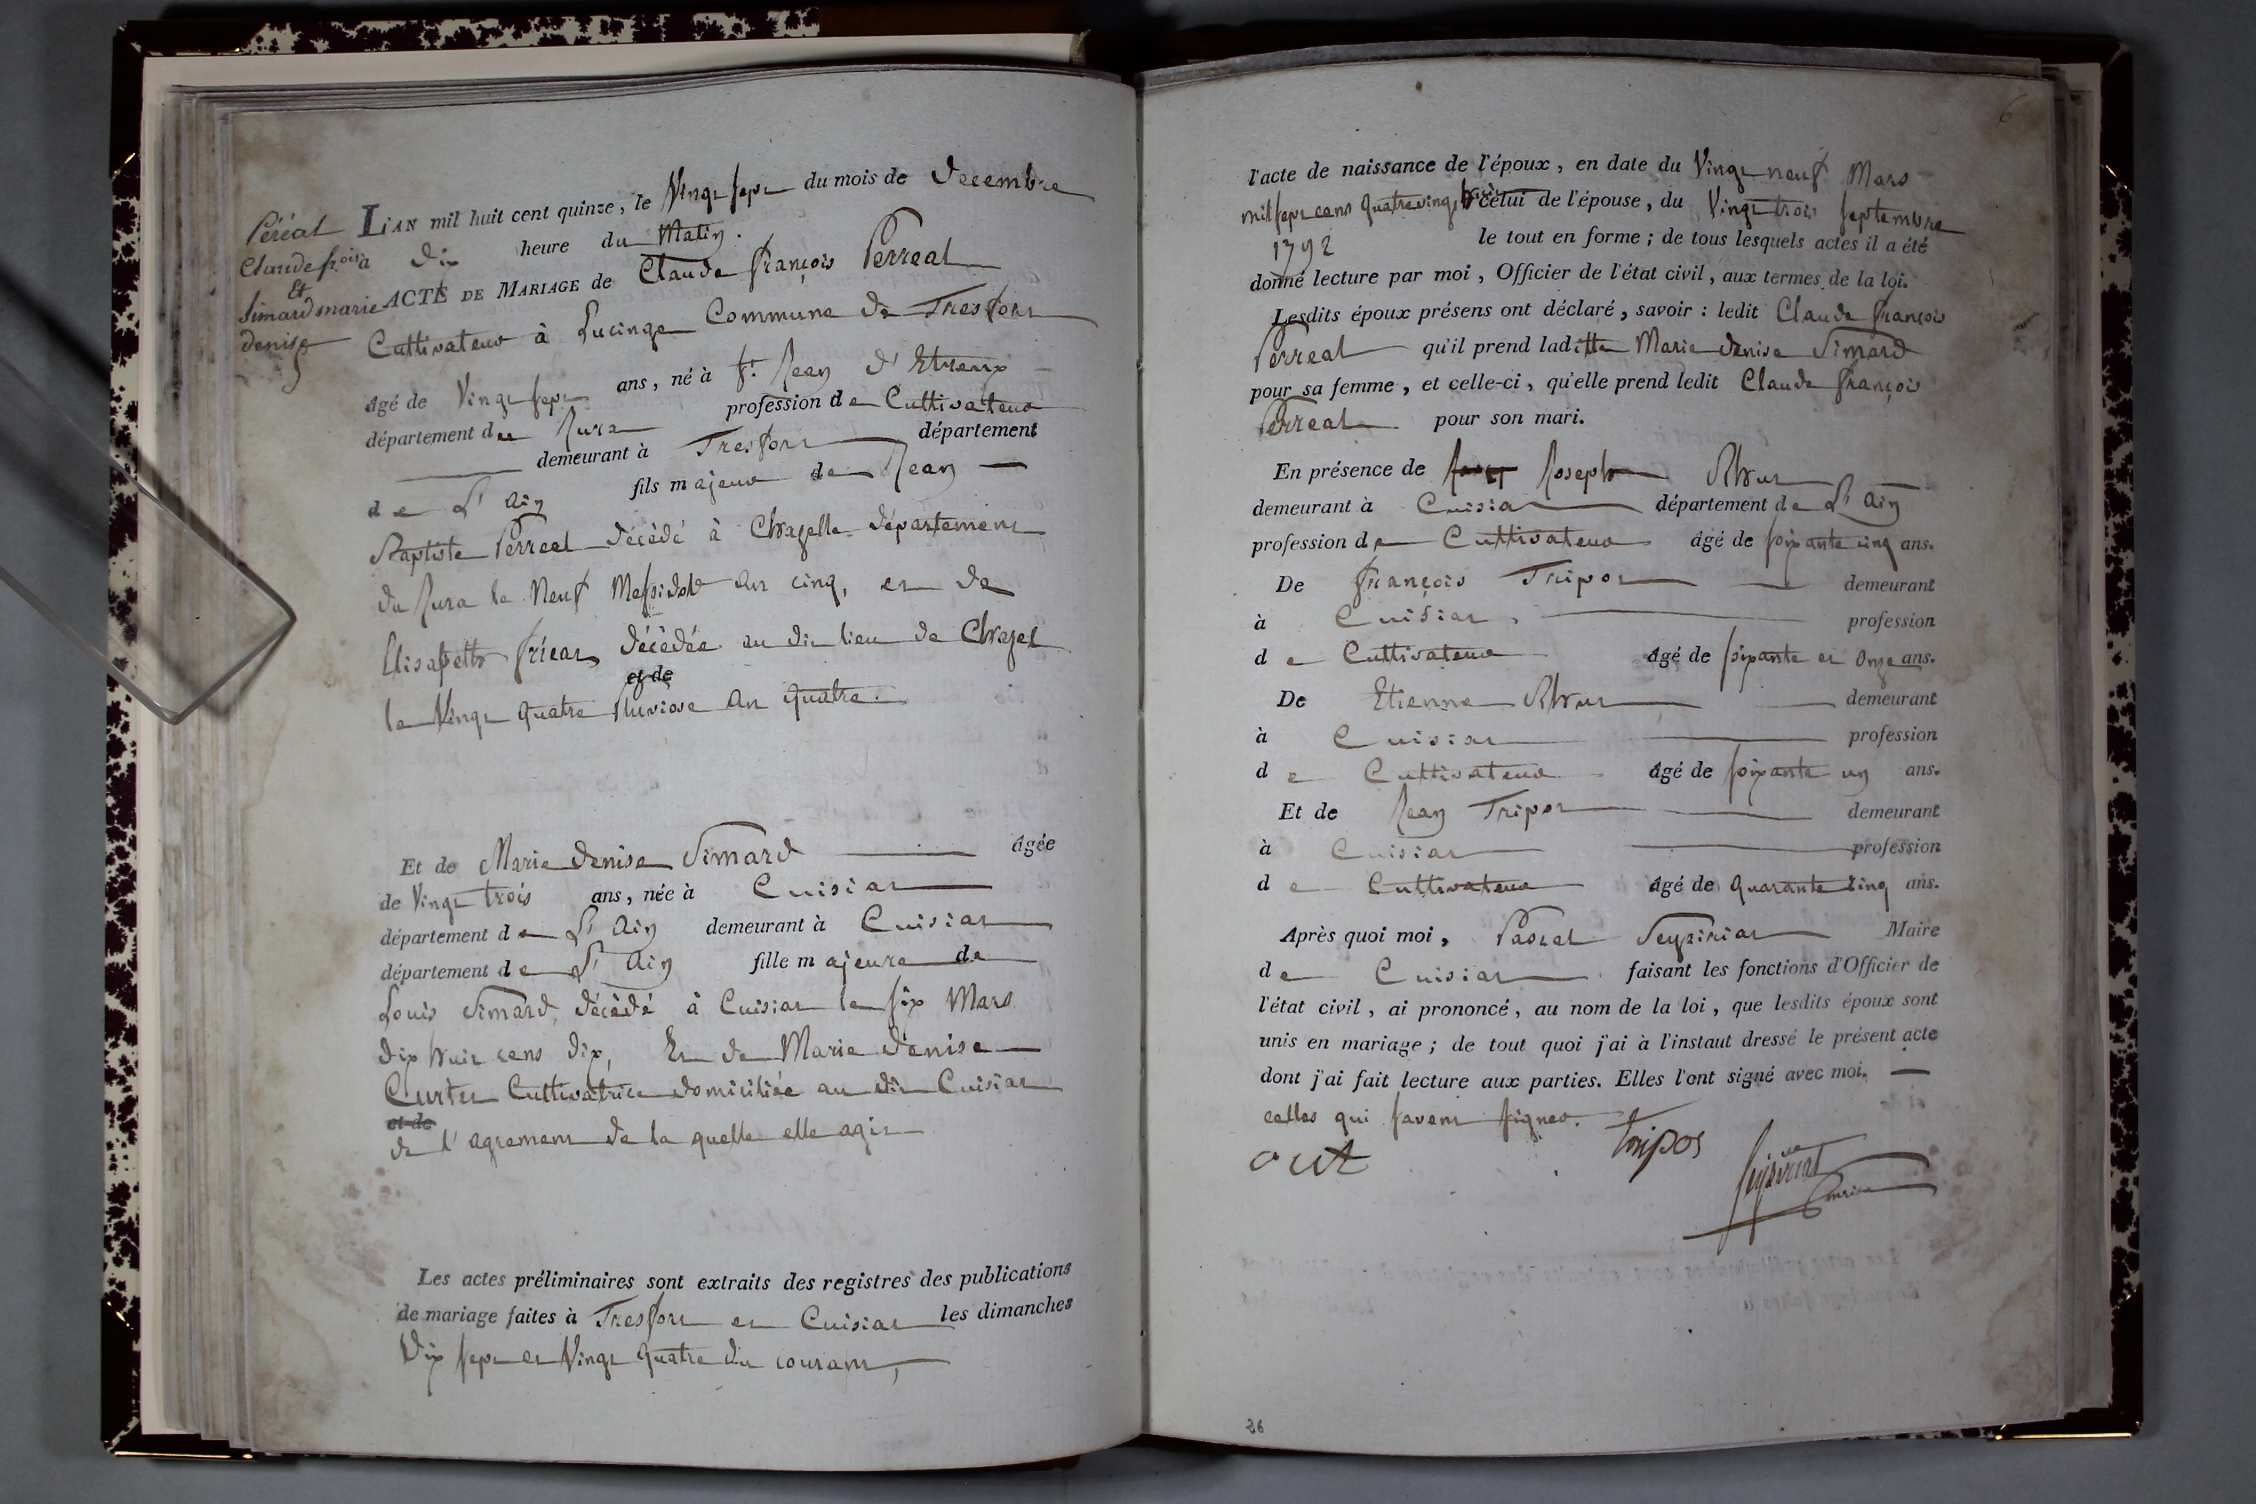 Péréal
Claude f.ois
Et
Simard marie
denise
L'AN mil huit cent quinze, le Vingt sept du mois de Decembre
à dix heure du Matin.
ACTE DE MARIAGE de Claude françois Perreal
Cultivateur à Lucinge Commune de Tresfort
âgé de Vingt sept ans, né à St. Jean d'Etreux
département du Jura profession de Cultivateur
demeurant à Tresfort département
de L'ain fils majeur de Jean
Baptiste Perreal décédé à Chazelle département
du Jura le Neuf Messidor an cinq, et de
Elisabeth décédée au dit lieu de Chazel
et de
le Vingt quatre Pluviose an quatre.
Et de Marie denise Simard âgée
de Vingt trois ans, née à Cuisiat
département de L'ain demeurant à Cuisiat
département de L'ain fille majeure de
Louis Simard, décédé à Cuisiat le six Mars
dix huit cens dix, Et de Marie denise
Curtet Cultivatrice domiciliée au dit Cuisiat
et de
de l'agrement de la quelle elle agit
Les actes préliminaires sont extraits des registres des publications
de mariage faites à Tresfort et Cuisiat les dimanches
Dix sept et Vingt quatre du courant,
6
l'acte de naissance de l'époux, en date du Vingt neuf Mars
mil sept cens quatrevingt huit celui de l'épouse, du Vingt trois septembre
1792 le tout en forme; de tous lesquels actes il a été
donné lecture par moi, Officier de l'état civil, aux termes de la loi.
Lesdits époux présens ont déclaré, savoir : ledit Claude françois
Perreal qu'il prend laditte Marie denise Simard
pour sa femme, et celle-ci, qu'elle prend ledit Claude françois
Perreal pour son mari.
En présence de Joseph
demeurant à Cuisiat département de L'ain
profession de Cultivateur âgé de soixante cinq ans.
De françois Tripoz demeurant
à Cuisiat, profession
de Cultivateur âgé de soixante et Onze ans.
De Etienne demeurant
à Cuisiat profession
de Cultivateur âgé de soixante un ans.
Et de Jean Tripoz demeurant
à Cuisiat profession
de Cultivateur âgé de quarante cinq ans.
Après quoi moi, Pascal Seyziriat Maire
de Cuisiat faisant les fonctions d'Officier de
l'état civil, ai prononcé, au nom de la loi, que lesdits époux sont
unis en mariage; de tout quoi j'ai à l'instant dressé le présent acte
dont j'ai fait lecture aux parties. Elles l'ont signé avec moi.
celles qui savent signer.
Tripos
Seyziriat
26